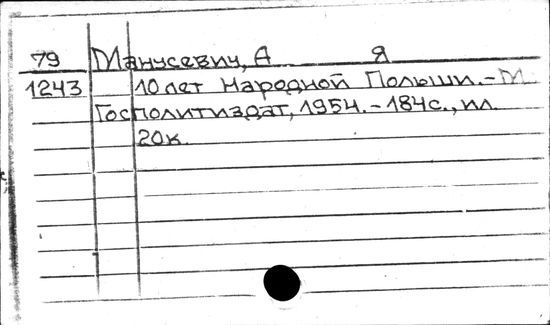 79 Манусевич, А Я
1243 10 лет Народной Польши. - М.
Госполитиздат, 1954. - 184 с., ил.
20к.